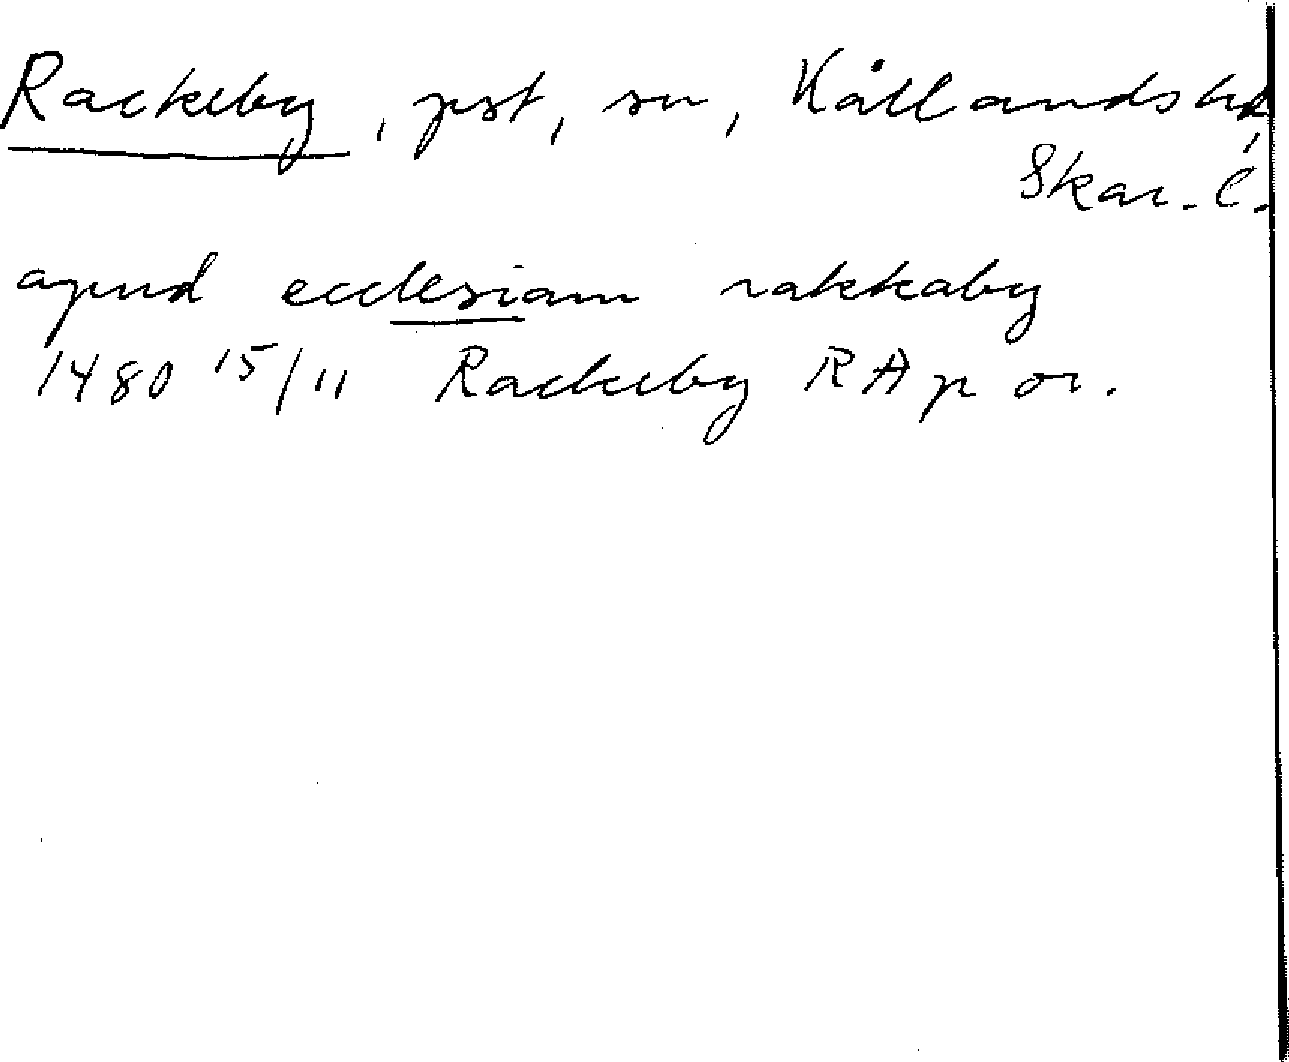 Rackeby, pst, sn, Kållands hd,
Skar. l.
apud ecclesiam rakkaby
1480 15/11 Rackeby RA p or.